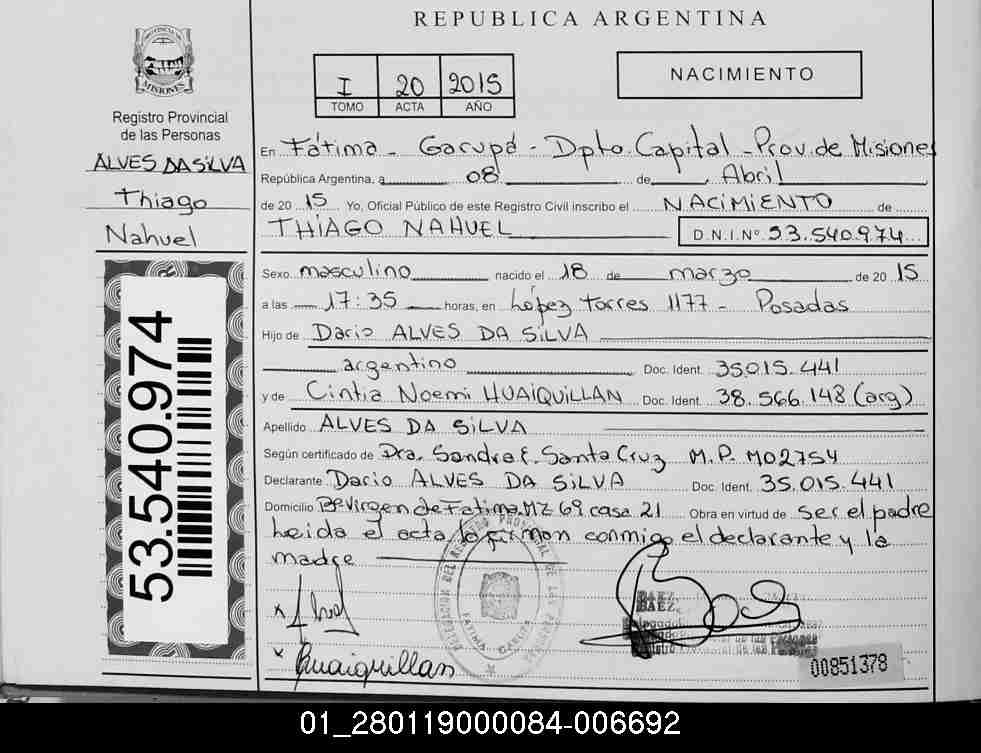 REPUBLICA ARGENTINA
PROVINCIA DE
MISIONES
Registro Provincial
de las Personas
ALVES DA SILVA
Thiago
Nahuel
53.540.974
I 20 2015
TOMO ACTA AÑO
NACIMIENTO
En Fátima - Garupá - Dpto. Capital - Prov. de Misiones
República Argentina, a 08 de Abril
de 20 15 Yo, Oficial Público de este Registro Civil inscribo el NACIMIENTO de
THIAGO NAHUEL D.N.I.Nº 53.540.974
Sexo masculino nacido el 18 de marzo de 20 15
a las 17:35 horas, en López Torres 1177 - Posadas
Hijo de Dario ALVES DA SILVA
argentino Doc. Ident. 35.015.441
y de Cintia Noemi HUAIQUILLAN Doc. Ident. 38.566.148 (arg)
Apellido ALVES DA SILVA
Según certificado de Dra. Sandra E. Santa Cruz M.P. M02754
Declarante Dario ALVES DA SILVA Doc. Ident. 35.015.441
Domicilio Bº Virgen de Fatima MZ 69 casa 21 Obra en virtud de ser el padre
Leida el acta la firman conmigo el declarante y la
madre
BAEZ,
Huaiquillan
00851378
01_280119000084-006692